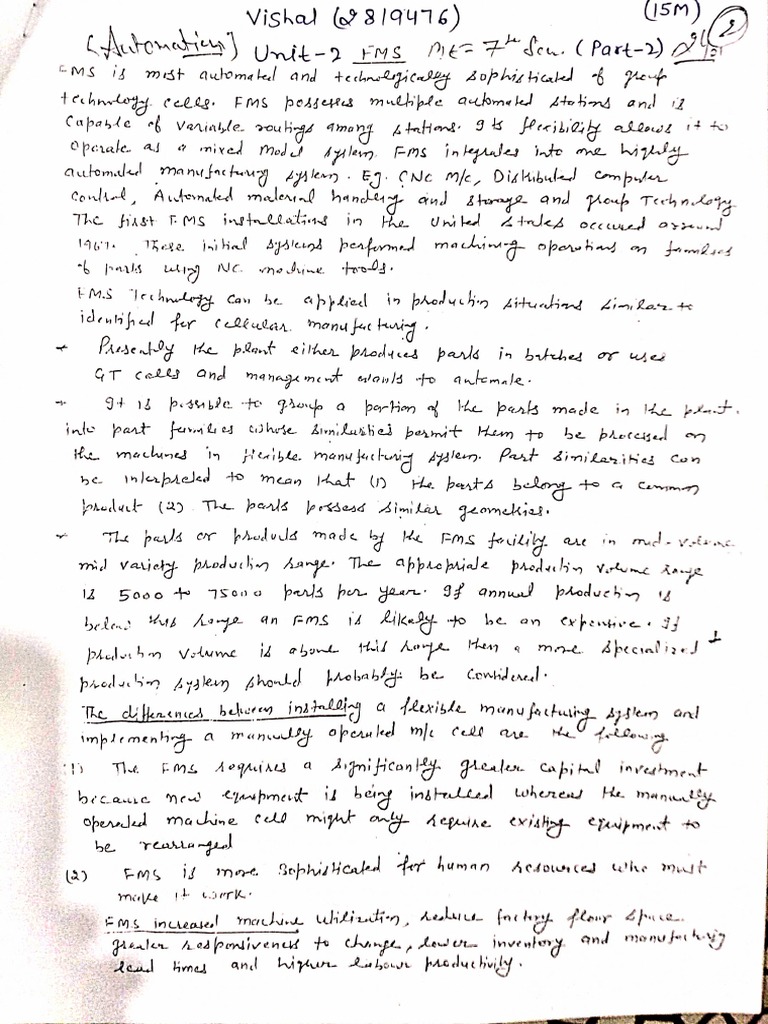 Vishal (2819476) (15M) 2
[Automation] Unit-2 FMS ME 7th Sem. (Part-2)
FMS is most automated and technologically sophisticated of group
technology cells. FMS possesses multiple automated stations and is
capable of variable routings among stations. Its flexibility allows it to
operate as a mixed model system. FMS integrates into one highly
automated manufacturing system. Eg. CNC M/C, Distributed computer
control, Automated material handling and storage and group Technology
The first FMS installations in the United States occured around
1967. These initial systems performed machining operations on families
of parts using NC machine tools.
FMS Technology can be applied in production situations similar to
identified for cellular manufacturing.
* Presently the plant either produces parts in batches or uses
GT cells and management wants to automate.
* It is possible to group a portion of the parts made in the plant.
into part families whose similarities permit them to be processed on
the machines in flexible manufacturing system. Part similarities can
be interpreted to mean that (1) the parts belong to a common
product (2) The parts possess similar geometries.
* The parts or products made by the FMS facility are in mid-volume
mid variety production range. The appropriate production volume range
is 5000 to 75000 parts per year. If annual production is
below this range an FMS is likely to be an expensive. If
production volume is above this range then a more specialized
production system should probably be considered.
The differences between installing a flexible manufacturing system and
implementing a manually operated m/c cell are the following
(1) The FMS requires a significantly greater capital investment
because new equipment is being installed whereas the manually
operated machine cell might only require existing equipment to
be rearranged
(2) FMS is more sophisticated for human resources who must
make it work.
FMS increased machine utilization, reduce factory floor space
greater responsiveness to change, lower inventory and manufacturing
lead times and higher labour productivity.